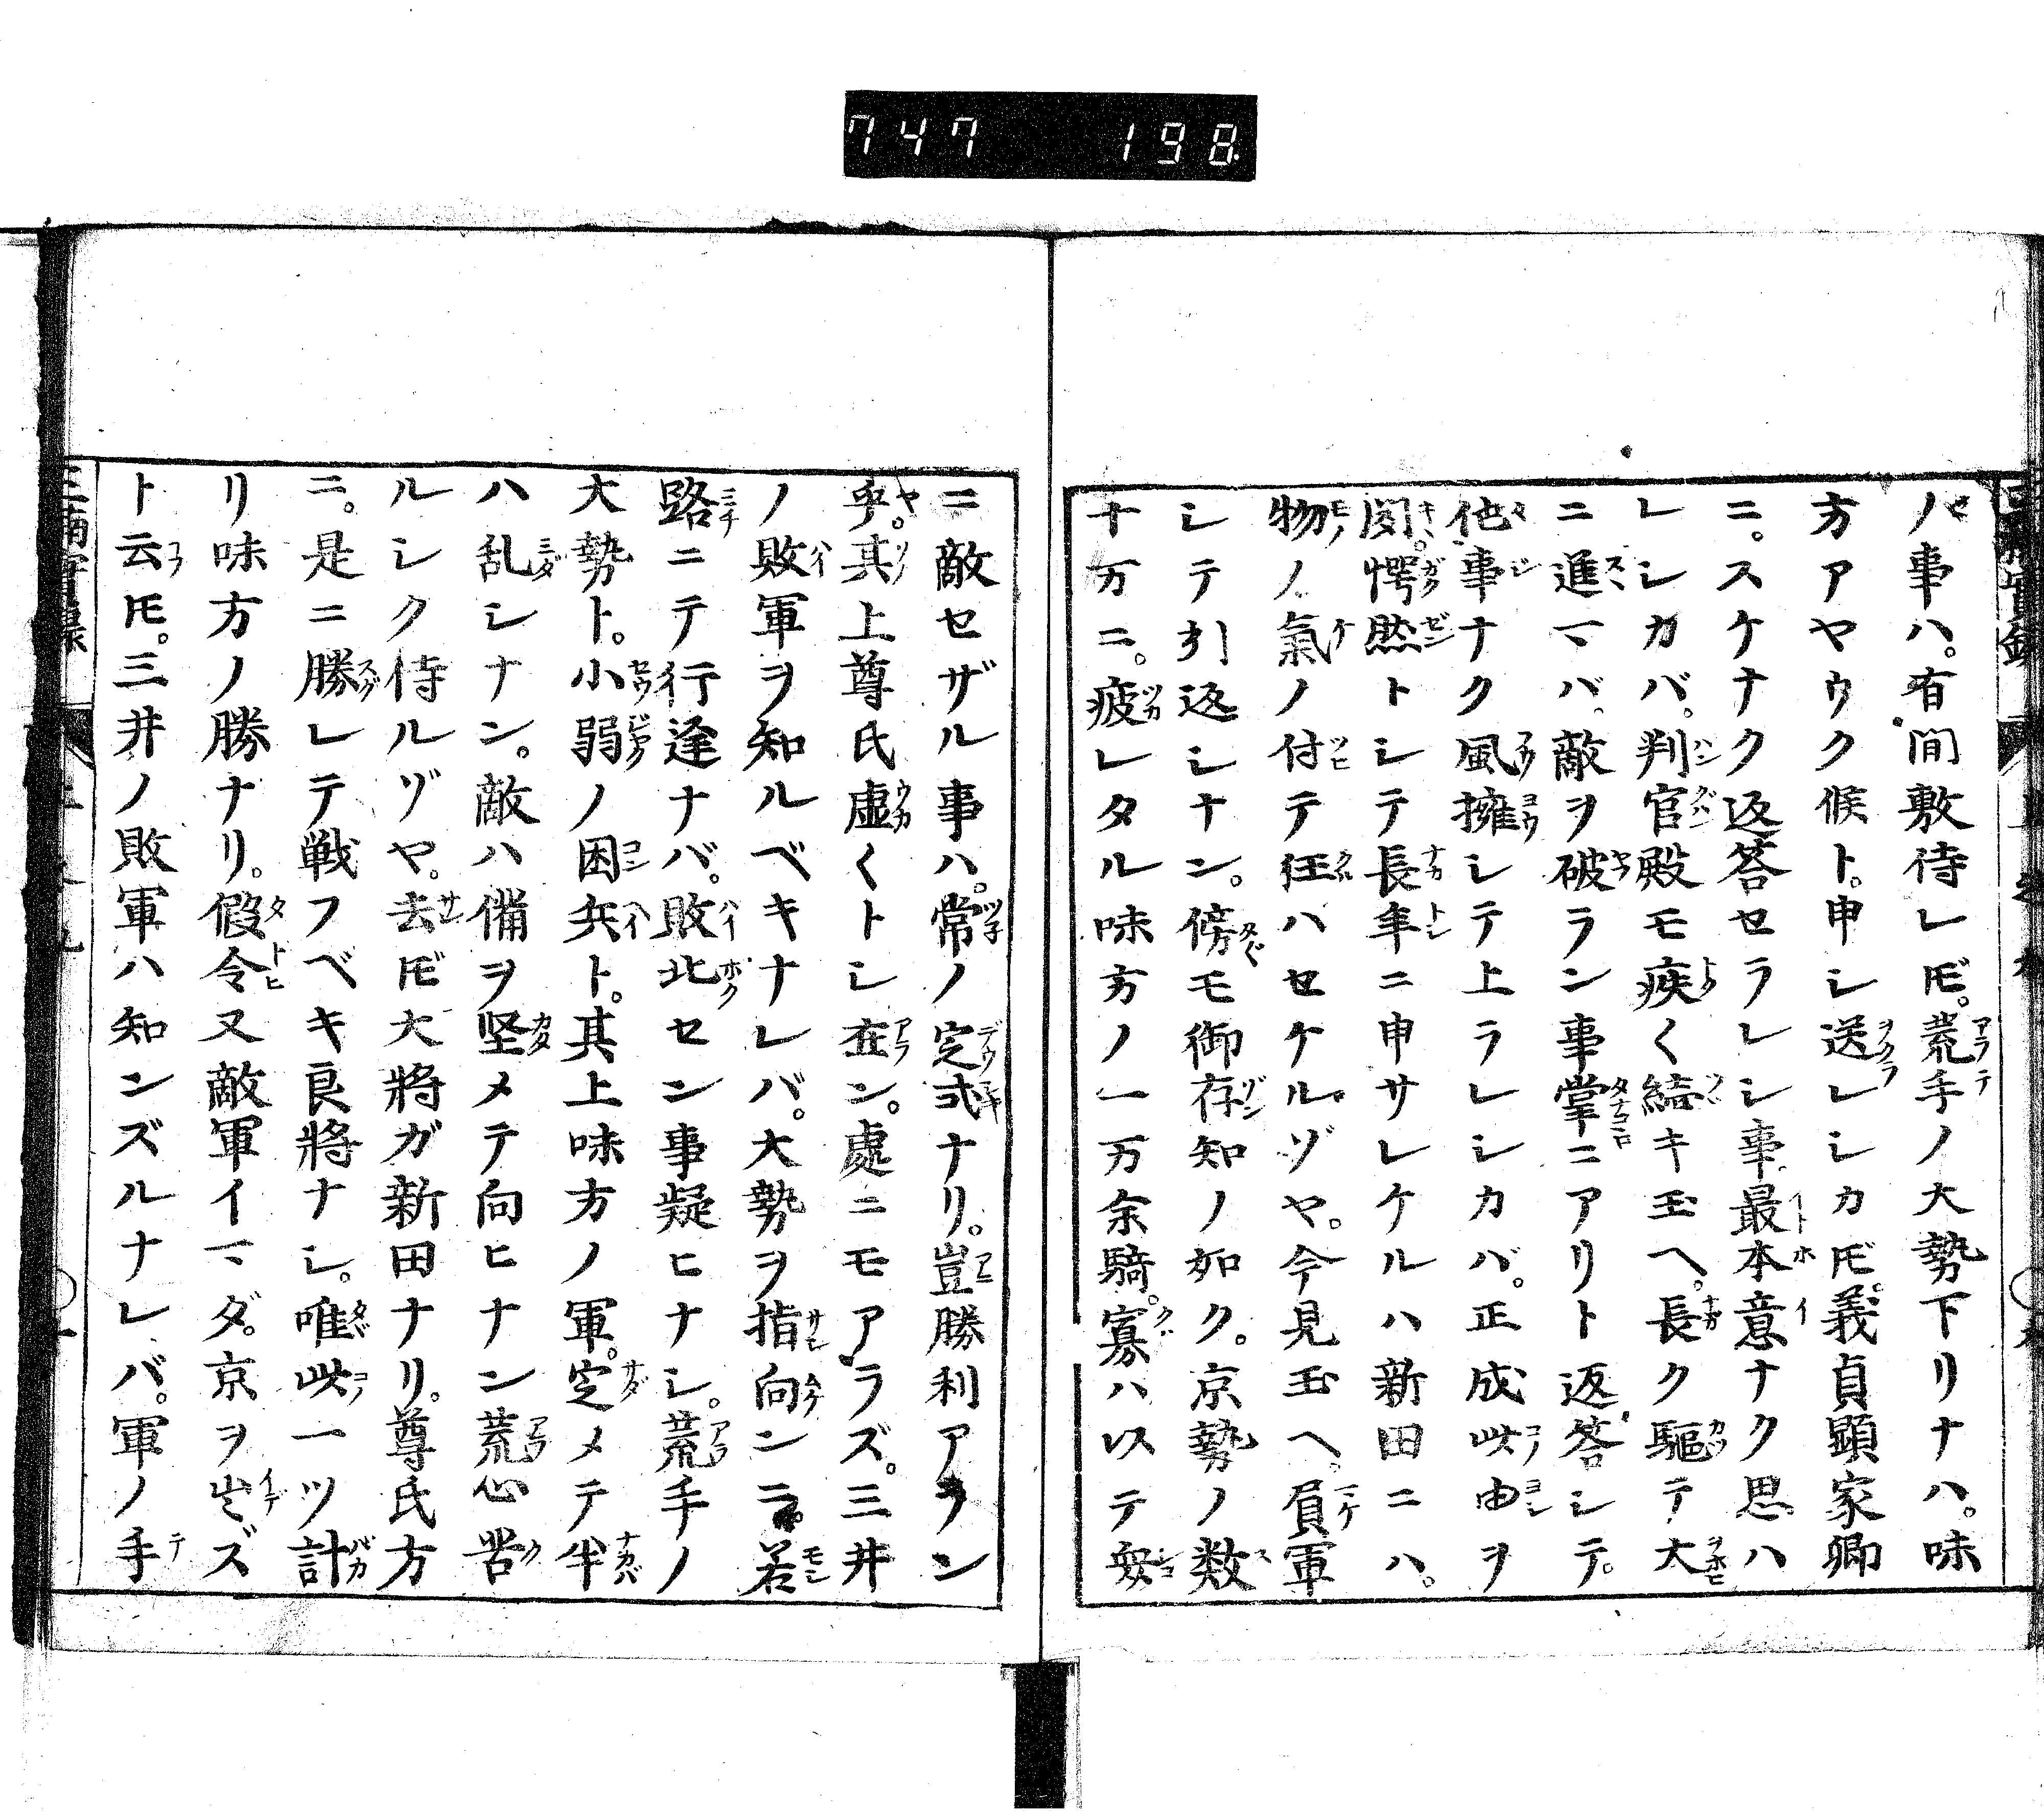 747 198
ノ事ハ。有間敷待レ𪜈。荒手ノ大勢下リナハ。味
方アヤウク候ト。申シ送レシカ𪜈。義貞顕家卿
ニ。スケナク返答セラレシ事最本意ナク思ハ
レシカバ。判官殿モ疾く続キ玉ヘ。長ク駆テ大
ニ進マバ。敵ヲ破ラン事掌ニアリト返答シテ。
他事ナク風擁シテ上ラレシカバ。正成此由ヲ
聞。愕然トシテ長年ニ申サレケルハ新田ニハ。
物ノ氣ノ付テ狂ハセケルゾヤ。今見玉ヘ。負軍
シテ引返シナン。傍モ御存知ノ如ク。京勢ノ数
十万ニ。疲レタル味方ノ一万余騎。寡ハ以テ衆
ニ敵セザル事ハ。常ノ定式ナリ。豈勝利アラン
乎。其上尊氏虚くトシ在ン。處ニモアラズ。三井
ノ敗軍ヲ知ルベキナレバ。大勢ヲ指向ンニ。若
路ニテ行逢ナバ。敗北セン事疑ヒナシ。荒手ノ
大勢ト。小弱ノ困兵ト。其上味方ノ軍。定メテ半
ハ乱シナン。敵ハ備ヲ堅メテ向ヒナン荒心苦
ルシク侍ルヅヤ。去𪜈大將ガ新田ナリ。尊氏方
ニ。是ニ勝レテ戦フベキ良將ナシ。唯此一ツ計
リ味方ノ勝ナリ。假令又敵軍イマダ。京ヲ出ズ
ト云𪜈。三井ノ敗軍ハ知ンズルナレバ。軍ノ手